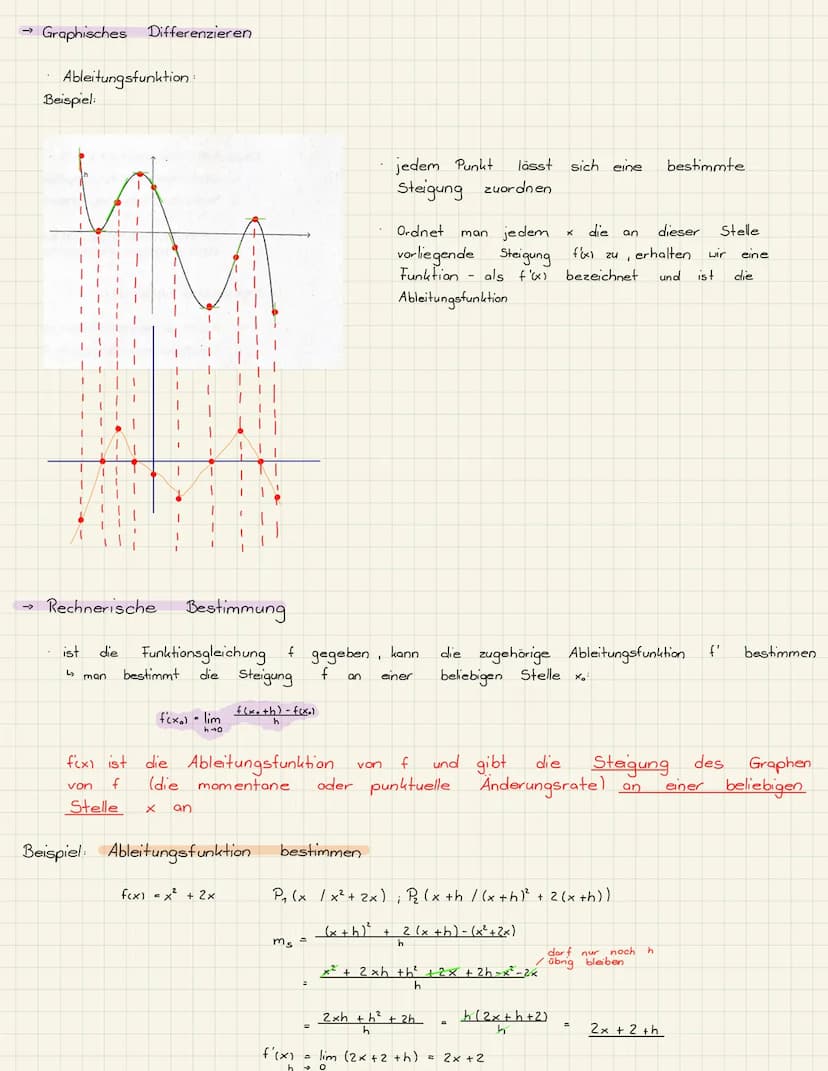 → Graphisches Differenzieren
· Ableitungsfunktion:
Beispiel:
h
· jedem Punkt lässt sich eine bestimmte
Steigung zuordnen
· Ordnet man jedem x die an dieser Stelle
vorliegende Steigung f'(x) zu, erhalten wir eine
Funktion - als f'(x) bezeichnet und ist die
Ableitungsfunktion
→ Rechnerische Bestimmung
· ist die Funktionsgleichung f gegeben, kann die zugehörige Ableitungsfunktion f' bestimmen
↳ man bestimmt die Steigung f an einer beliebigen Stelle x₀:
f'(x₀) = lim h→0 f(x₀+h)-f(x₀) / h
f'(x) ist die Ableitungsfunktion von f und gibt die Steigung des Graphen
von f (die momentane oder punktuelle Änderungsrate) an einer beliebigen
Stelle x an
Beispiel: Ableitungsfunktion bestimmen
f(x) = x² + 2x P₁ (x / x² + 2x) ; P₂ (x + h / (x + h)² + 2 (x + h))
mₛ = (x + h)² + 2 (x + h) - (x² + 2x) / h
darf nur noch h
übrig bleiben
= x² + 2xh + h² + 2x + 2h - x² - 2x / h
= 2xh + h² + 2h / h = h (2x + h + 2) / h = 2x + 2 + h
f'(x) = lim h → 0 (2x + 2 + h) = 2x + 2